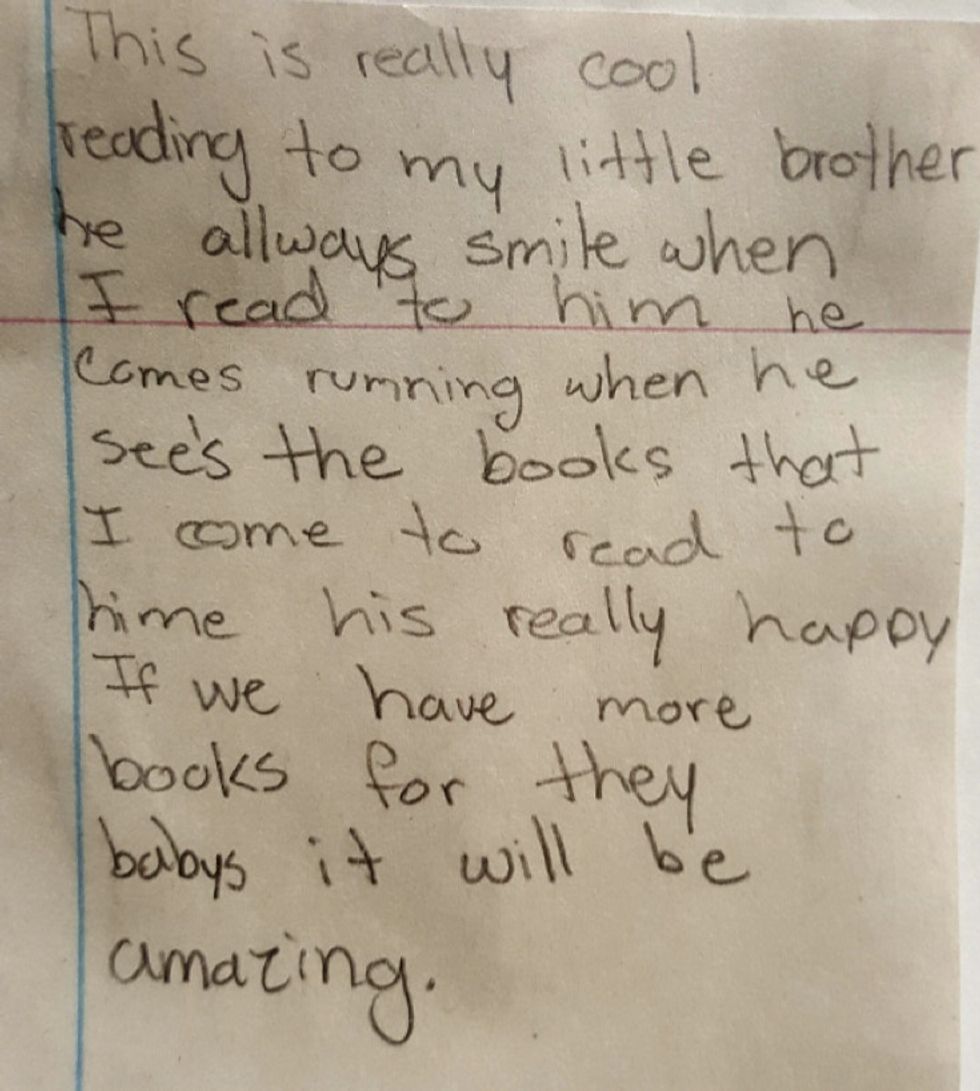 This is really cool
reading to my little brother
he allways smile when
I read to him he
comes running when he
see's the books that
I come to read to
hime his really happy
If we have more
books for they
babys it will be
amazing.